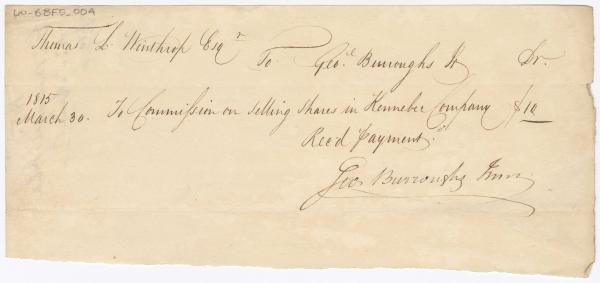 60-6BFG_004
Thomas L. Winthrop Esqr To Geo. Burroughs Jr Dr.
1815
March 30. To Commission on selling shares in Kennebec Company $10
Rec'd Payment
Geo Burroughs Junr